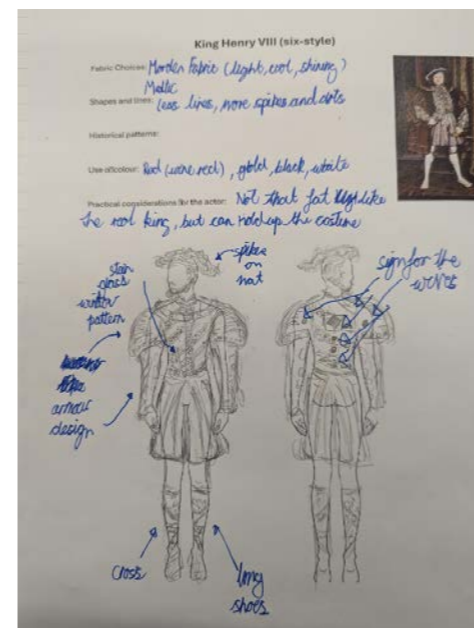 King Henry VIII (six-style)
Fabric Choices: Morden Fabric (light, cool, shining)
Metlic
Shapes and lines: less lines, more spikes and dots
Historical patterns:
Use of colour: Red (wine red), glold, black, white
Practical considerations for the actor: Not that fat like
the real king, but can hold up the costume
spike
on
hat
stain
glass
window
pattern
armour
design
cross
long
shoes
sign for the
wives